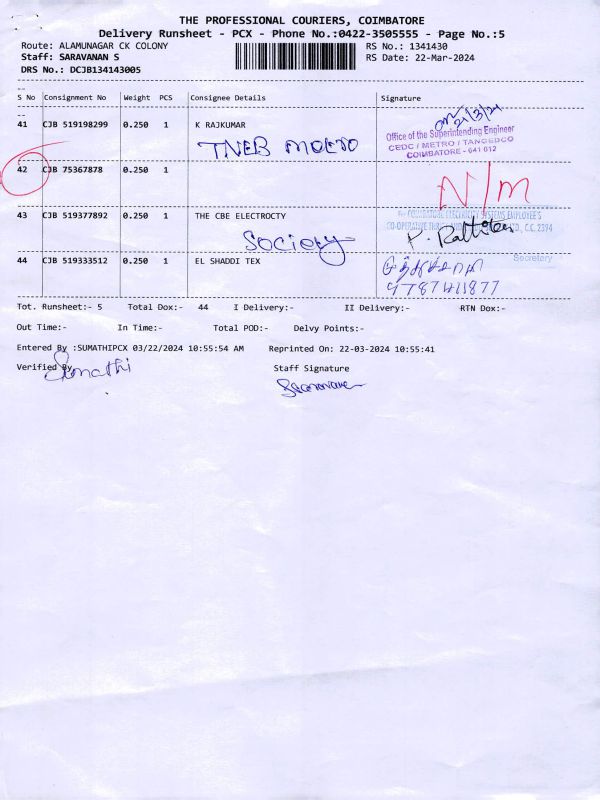 THE PROFESSIONAL COURIERS, COIMBATORE
Delivery Runsheet - PCX - Phone No.:0422-3505555 - Page No.:5
Route: ALAMUNAGAR CK COLONY
RS No.: 1341430
Staff: SARAVANAN S
RS Date: 22-Mar-2024
DRS No.: DCJB134143005
S No Consignment No Weight PCS Consignee Details Signature
41 CJB 519198299 0.250 1 K RAJKUMAR
TNEB METRO
Office of the Superintending Engineer
CEDC / METRO / TANGEDCO
COIMBATORE - 641 012
42 CJB 75367878 0.250 1
N/M
43 CJB 519377892 0.250 1 THE CBE ELECTROCTY
Society
COIMBATORE ELECTRICITY SYSTEMS EMPLOYEE'S
CO-OPERATIVE LTD., C.C. 2374
Secretary
44 CJB 519333512 0.250 1 EL SHADDI TEX
9787411877
Tot. Runsheet:- 5 Total Dox:- 44 I Delivery:- II Delivery:- RTN Dox:-
Out Time:- In Time:- Total POD:- Delvy Points:-
Entered By :SUMATHIPCX 03/22/2024 10:55:54 AM Reprinted On: 22-03-2024 10:55:41
Verified By Sumathi
Staff Signature